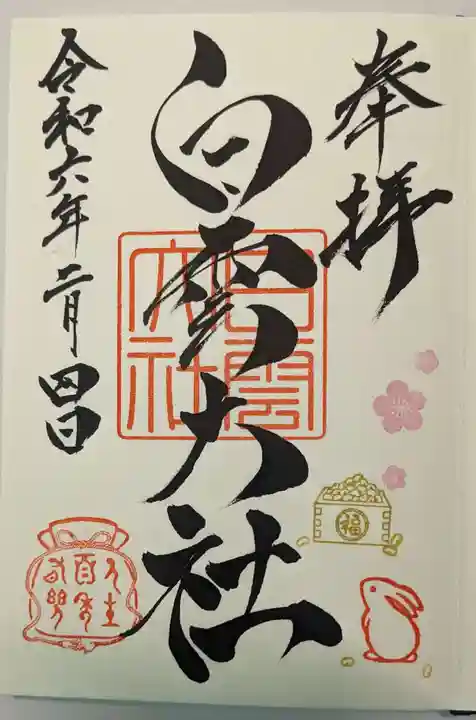 奉拝
白雲大社
白雲
大社
福
令和六年二月四日